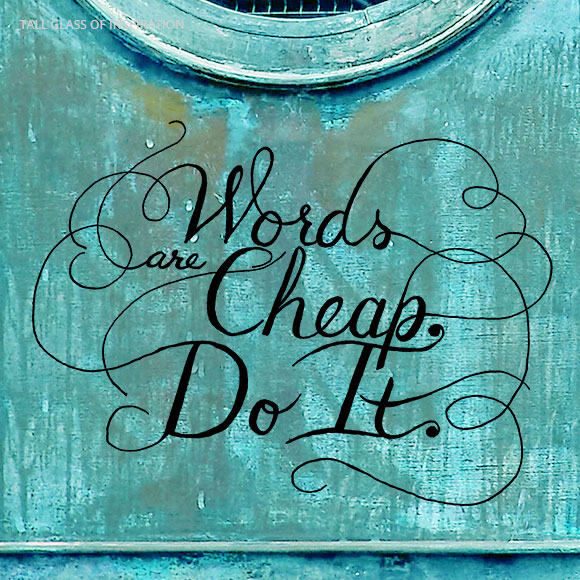 TALL GLASS OF INSPIRATION
Words
are
Cheap.
Do It.